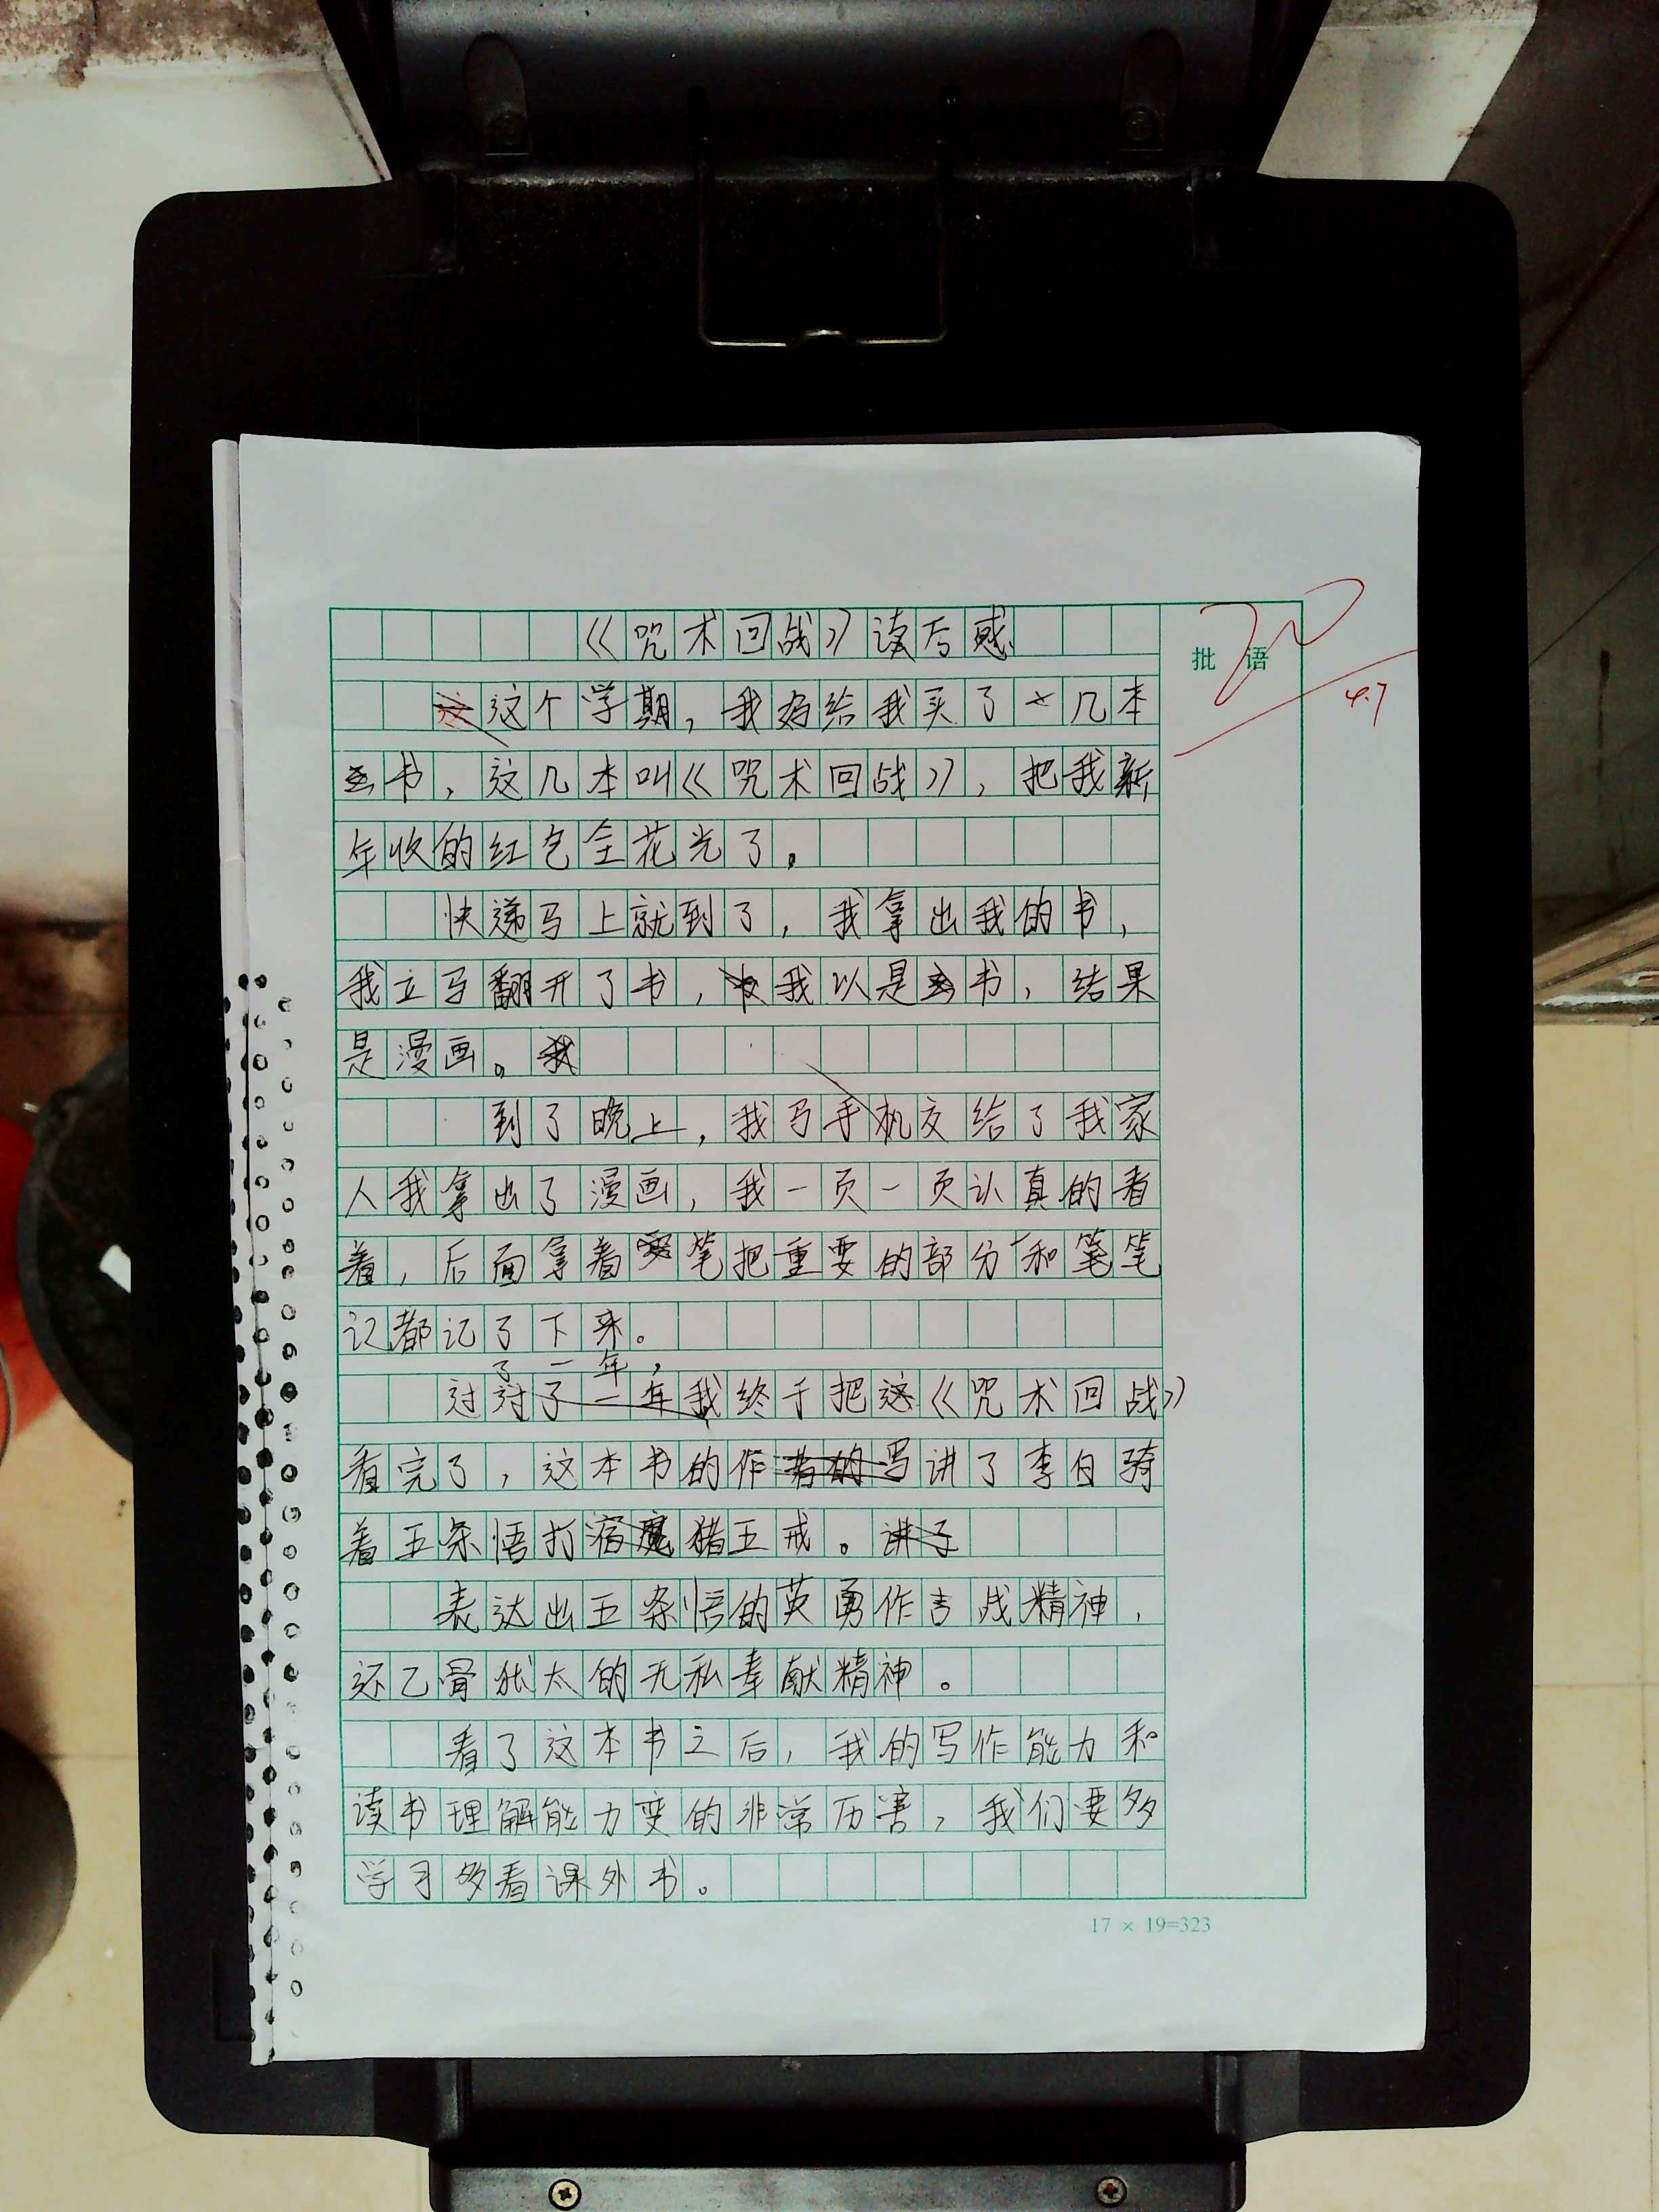 《咒术回战》读后感
批语
这个学期，我妈给我买了几本
4.7
书，这几本叫《咒术回战》，把我新
年收的红包全花光了。
快递马上就到了，我拿出我的书，
我立马翻开了书，我以是书，结果
是漫画。
到了晚上，我马手机交给了我家
人我拿出了漫画，我一页一页认真的看
着，后面拿着笔把重要的部分和笔
记都记了下来。
了一年，
过我终于把这《咒术回战》
看完了，这本书的作讲了李白骑
着五条悟打猪五戒。
表达出五条悟的英勇作吉战精神，
还乙骨犹太的无私奉献精神。
看了这本书之后，我的写作能力和
读书理解能力变的非常历害，我们要多
学习多看课外书。
17 × 19=323